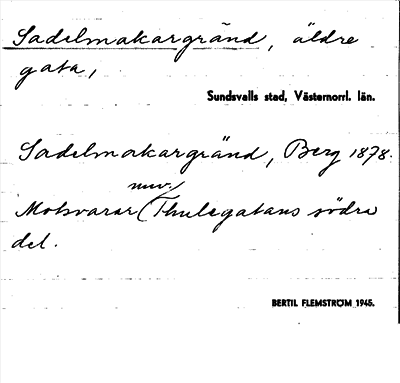 Sadelmakargränd, äldre
gata,
Sundsvalls stad, Västernorrl. län.
Sadelmakargränd, Berg 1878.
nuv.
Motsvarar (Thulegatans södra
del.
BERTIL FLEMSTRÖM 1945.